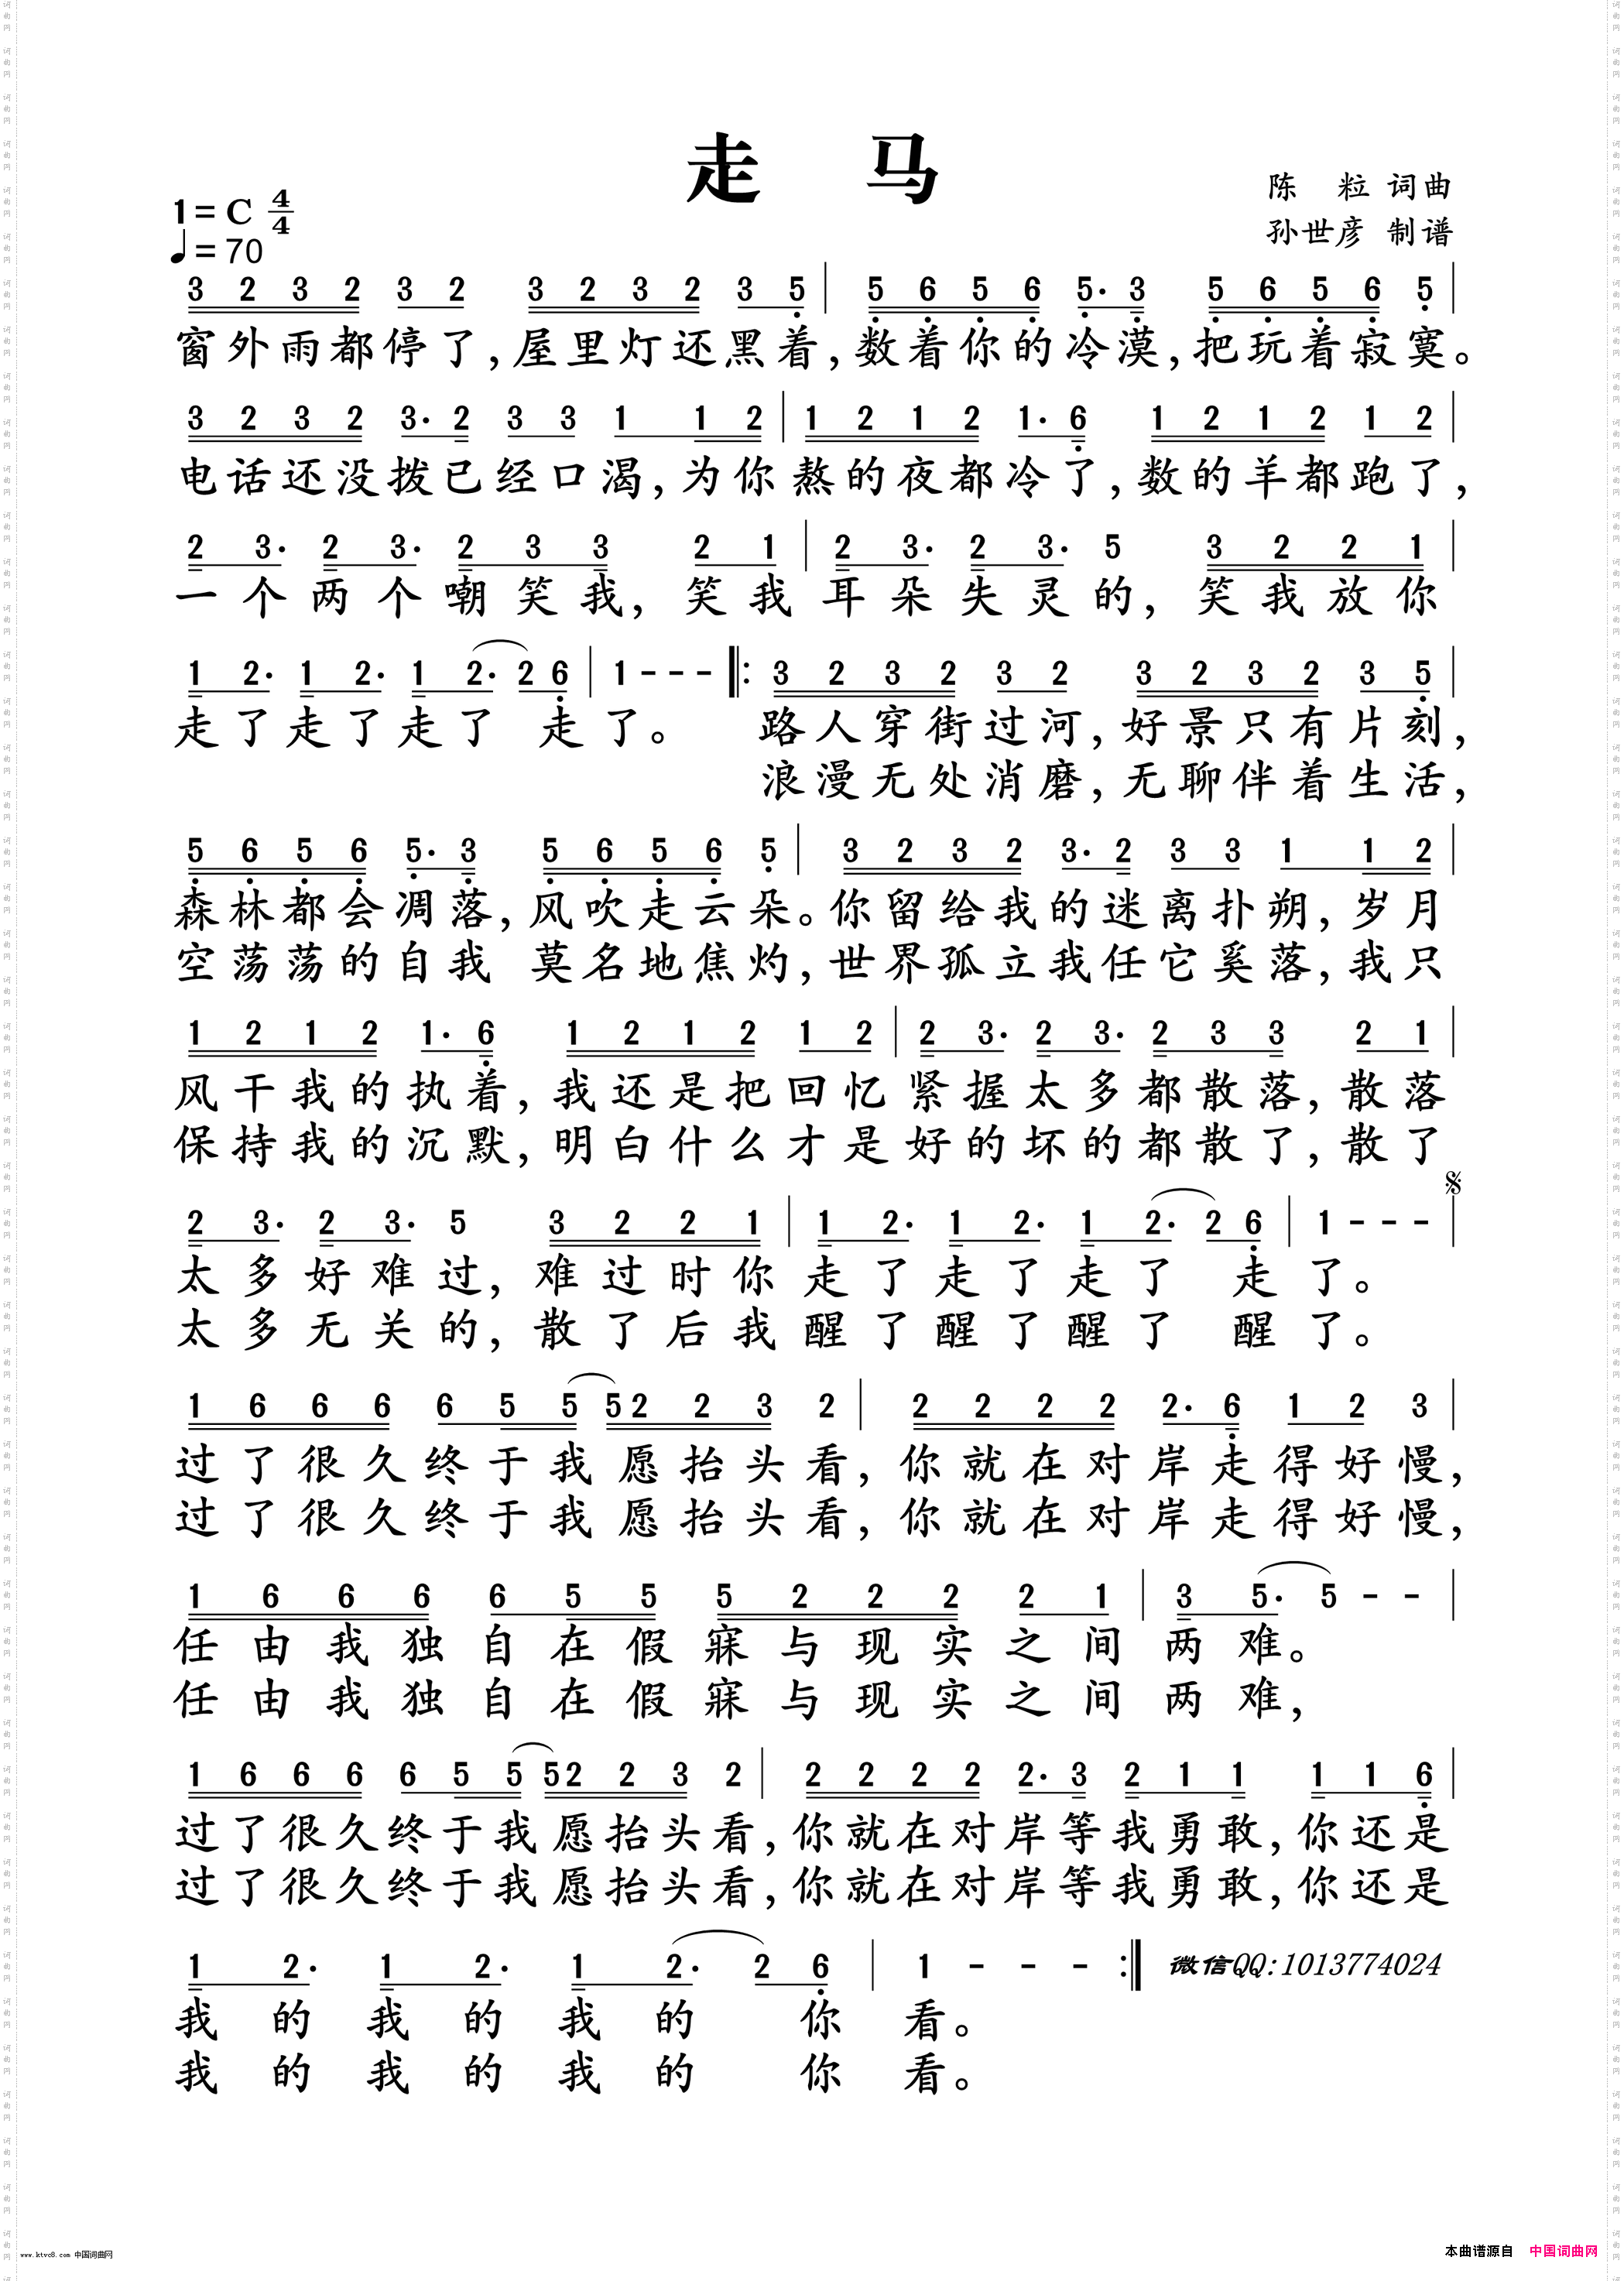 走 马
陈 粒 词曲
孙世彦 制谱
1=C 4/4
♩=70
3 2 3 2 3 2 3 2 3 2 3 5 | 5 6 5 6 5· 3 5 6 5 6 5 |
窗外雨都停了,屋里灯还黑着,数着你的冷漠,把玩着寂寞。
3 2 3 2 3· 2 3 3 1 1 2 | 1 2 1 2 1· 6 1 2 1 2 1 2 |
电话还没拨已经口渴,为你熬的夜都冷了,数的羊都跑了,
2 3· 2 3· 2 3 3 2 1 | 2 3· 2 3· 5 3 2 2 1 |
一个两个嘲笑我,笑我耳朵失灵的,笑我放你
1 2· 1 2· 1 2· 2 6 | 1 - - - |: 3 2 3 2 3 2 3 2 3 2 3 5 |
走了走了走了 走了。 路人穿街过河,好景只有片刻,
浪漫无处消磨,无聊伴着生活,
5 6 5 6 5· 3 5 6 5 6 5 | 3 2 3 2 3· 2 3 3 1 1 2 |
森林都会凋落,风吹走云朵。你留给我的迷离扑朔,岁月
空荡荡的自我 莫名地焦灼,世界孤立我任它奚落,我只
1 2 1 2 1· 6 1 2 1 2 1 2 | 2 3· 2 3· 2 3 3 2 1 |
风干我的执着,我还是把回忆紧握太多都散落,散落
保持我的沉默,明白什么才是好的坏的都散了,散了
𝄋
2 3· 2 3· 5 3 2 2 1 | 1 2· 1 2· 1 2· 2 6 | 1 - - - |
太多好难过,难过时你走了走了走了 走了。
太多无关的,散了后我醒了醒了醒了 醒了。
1 6 6 6 6 5 5 5 2 2 3 2 | 2 2 2 2 2· 6 1 2 3 |
过了很久终于我愿抬头看,你就在对岸走得好慢,
过了很久终于我愿抬头看,你就在对岸走得好慢,
1 6 6 6 6 5 5 5 2 2 2 2 1 | 3 5· 5 - - |
任由我独自在假寐与现实之间两难。
任由我独自在假寐与现实之间两难,
1 6 6 6 6 5 5 5 2 2 3 2 | 2 2 2 2 2· 3 2 1 1 1 1 6 |
过了很久终于我愿抬头看,你就在对岸等我勇敢,你还是
过了很久终于我愿抬头看,你就在对岸等我勇敢,你还是
1 2· 1 2· 1 2· 2 6 | 1 - - - :| 微信QQ:1013774024
我的我的我的 你看。
我的我的我的 你看。
www.ktvc8.com 中国词曲网
本曲谱源自 中国词曲网